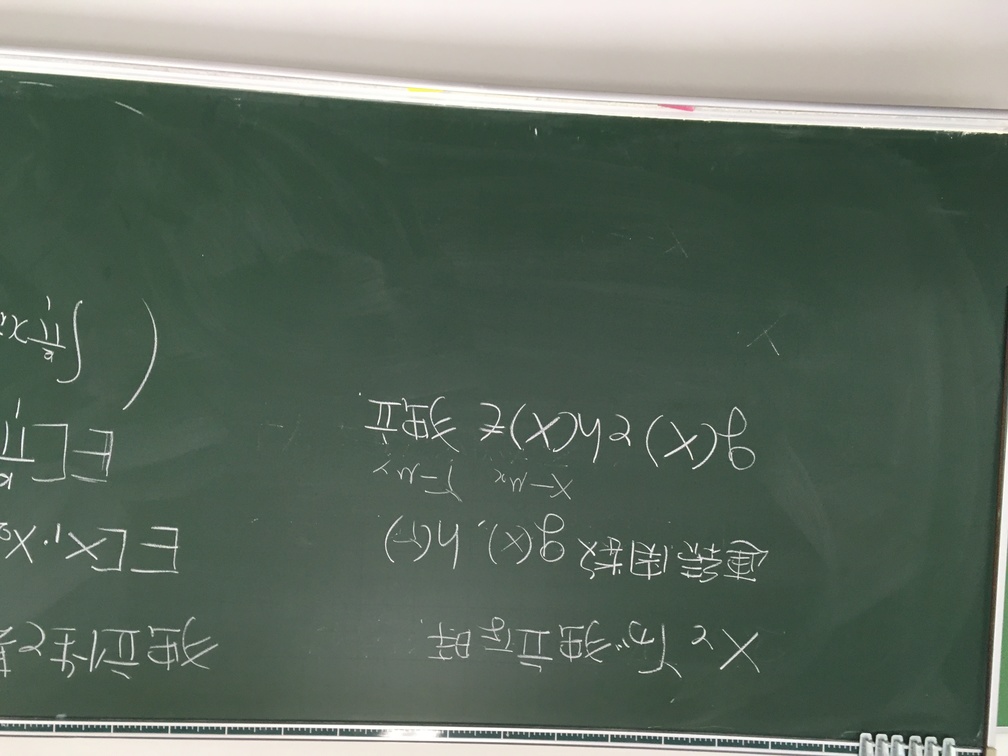 XとYが独立な時.
連続関数 g(x), h(Y)
X-μx Y-μY
g(X)とh(X)も独立.
独立性と
E[X1・X2
E[Π
( ∫Π xi